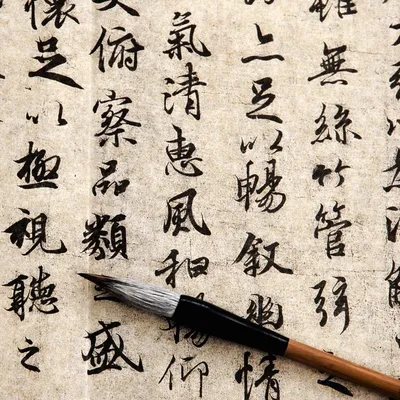 雖無絲竹管弦之
亦足以暢敘幽情
氣清惠風和暢仰
大俯察品類之盛
懷足以極視聽之